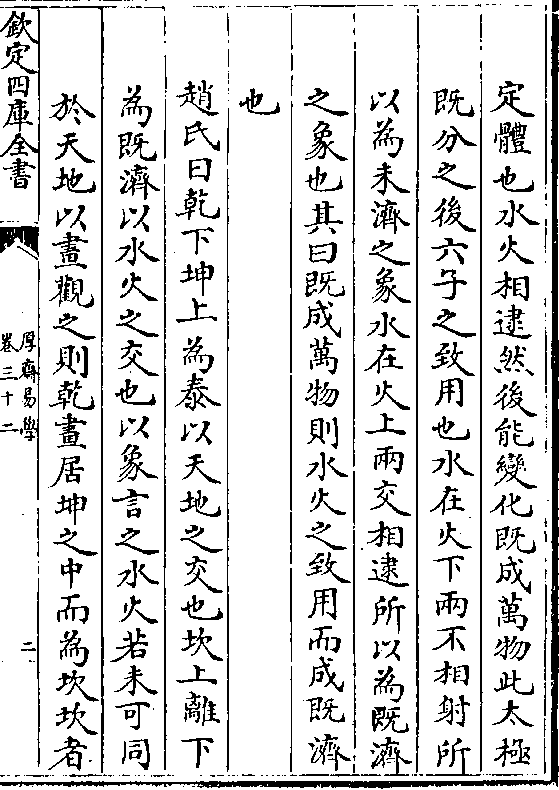 定體也水火相逮然後能變化既成萬物此太極
既分之後六子之致用也水在火下兩不相射所
以為未濟之象水在火上兩交相逮所以為既濟
之象也其曰既成萬物則水火之致用而成既濟
也
趙氏曰乾下坤上為泰以天地之交也坎上離下
為既濟以水火之交也以象言之水火若未可同
於天地以畫觀之則乾畫居坤之中而為坎坎者
欽定四庫全書
厚齋易學
卷三十二
二